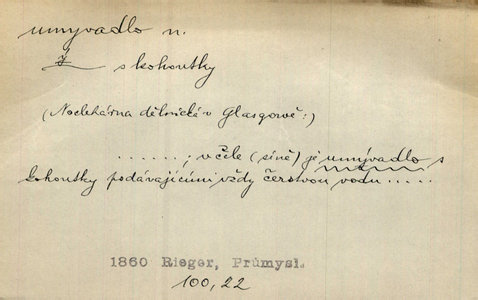 umyvadlo n.
ž s kohoutky
(Noclehárna dělnická v Glasgowě:)
......; v čele (síně) je umývadlo s
kohoutky podávajícími vždy čerstvou vodu.....
1860 Rieger, Průmysl.
100,22